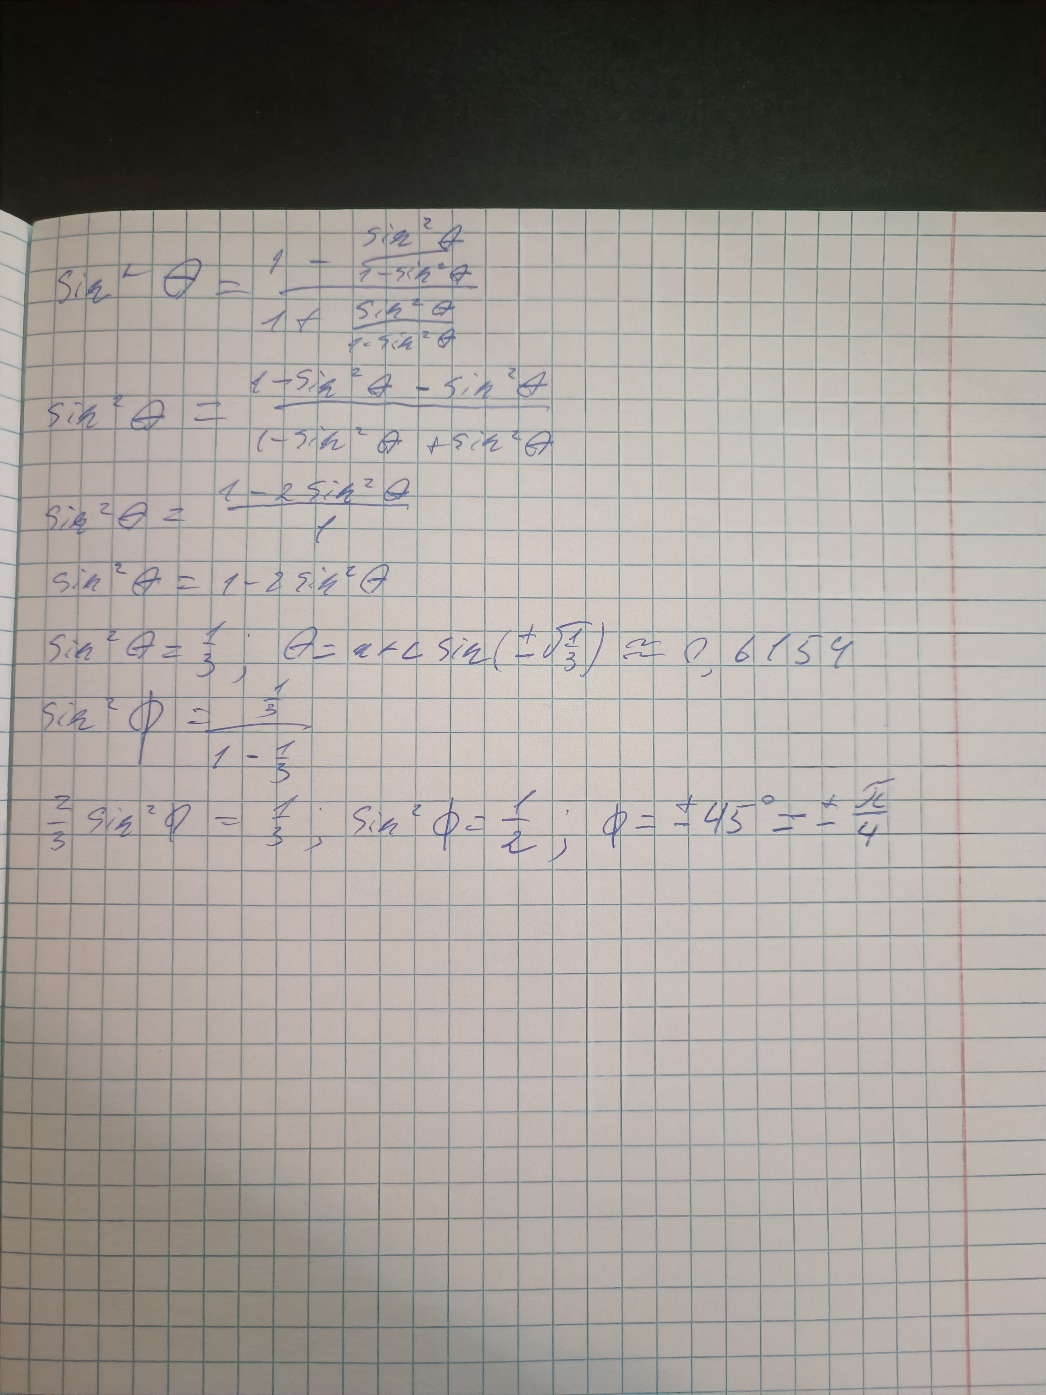 sin² θ = (1 - (sin² θ)/(1-sin² θ))/(1 + (sin² θ)/(1-sin² θ))
sin² θ = (1-sin² θ - sin² θ)/(1-sin² θ + sin² θ)
sin² θ = (1-2 sin² θ)/1
sin² θ = 1-2 sin² θ
sin² θ = 1/3 ; θ = arcsin(±√(1/3)) ≈ 0,6154
sin² ϕ = (1/3)/(1 - 1/3)
2/3 sin² ϕ = 1/3 ; sin² ϕ = 1/2 ; ϕ = ±45° = ± π/4